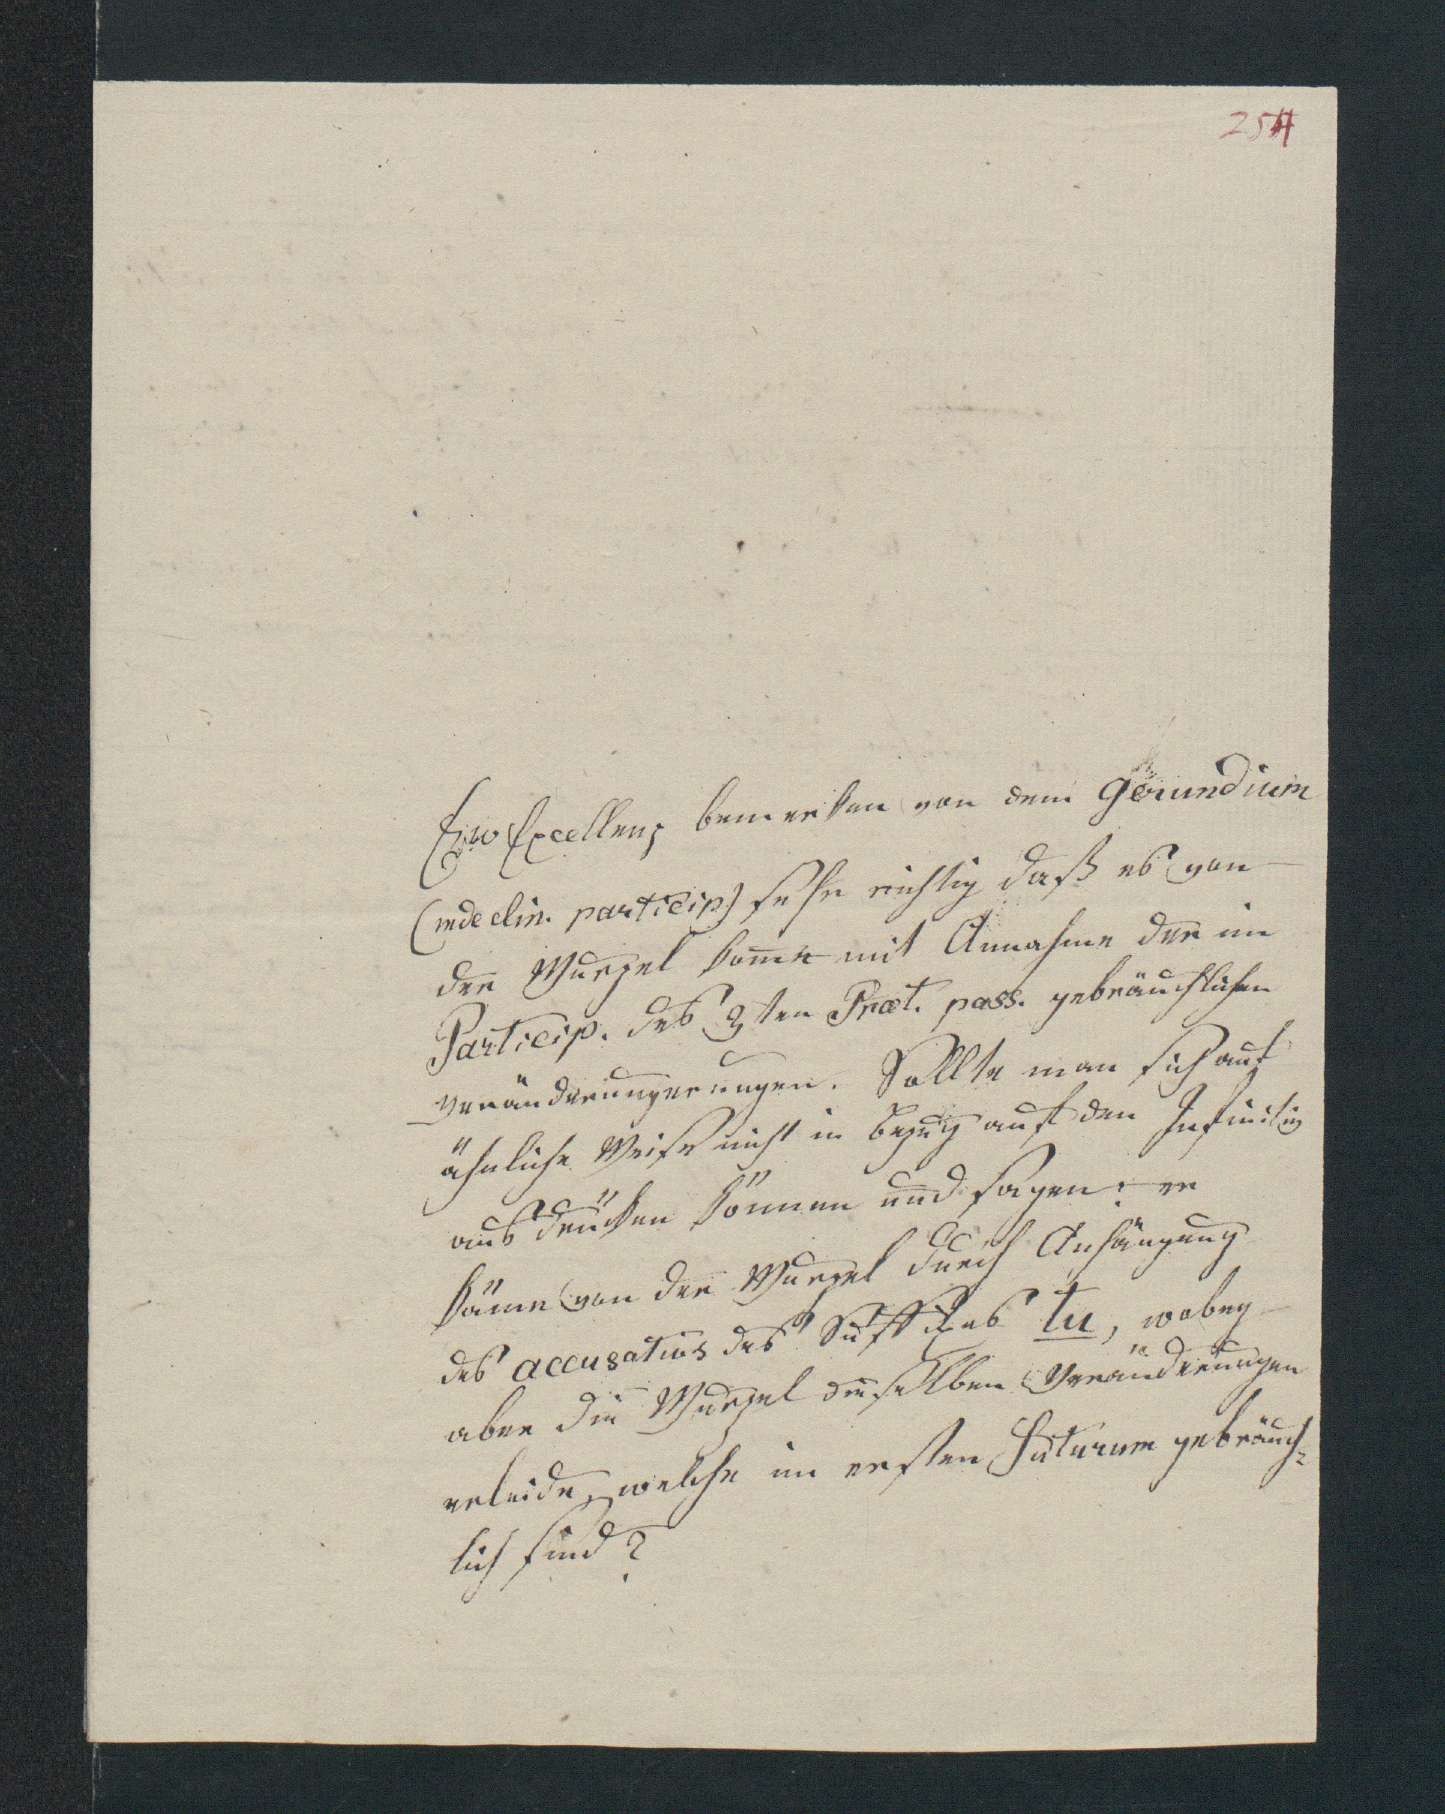 254
Ew Excellenz bemerken von dem Gerundium
(indeclin. particip) sehr richtig daß es von
der Wurzel komme mit Annahme der im
Particip. des 3ten Praet. pass. gebräuchlichen
Verändrungerungen. Sollte man sich auf
ähnliche Weise nicht in bezug auf den Infinitiv
ausdrücken können und sagen: er
käme von der Wurzel durch Anhängung
des accusativs des Suffixes tu, wobey
aber die Wurzel dieselben Verändrungen
erleide, welche im ersten Futurum gebräuch-
lich sind?